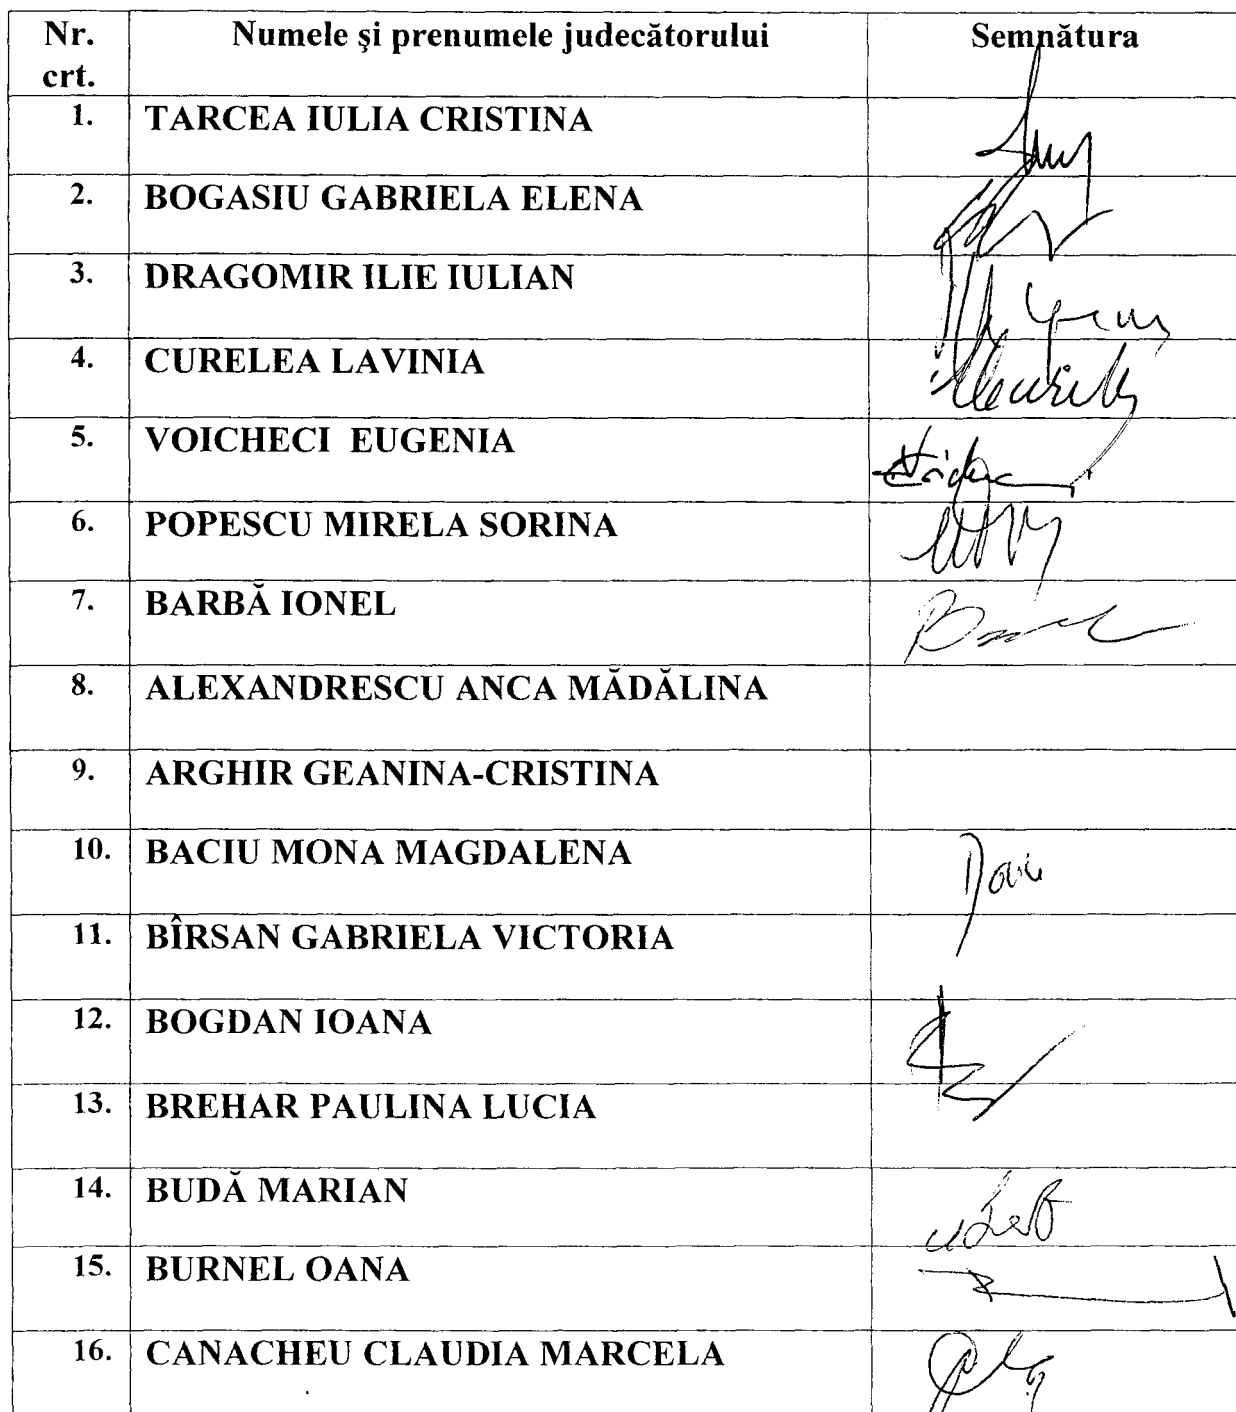 Nr. crt. Numele și prenumele judecătorului Semnătura
1. TARCEA IULIA CRISTINA
2. BOGASIU GABRIELA ELENA
3. DRAGOMIR ILIE IULIAN
4. CURELEA LAVINIA
5. VOICHECI EUGENIA
6. POPESCU MIRELA SORINA
7. BARBĂ IONEL
8. ALEXANDRESCU ANCA MĂDĂLINA
9. ARGHIR GEANINA-CRISTINA
10. BACIU MONA MAGDALENA
11. BÎRSAN GABRIELA VICTORIA
12. BOGDAN IOANA
13. BREHAR PAULINA LUCIA
14. BUDĂ MARIAN
15. BURNEL OANA
16. CANACHEU CLAUDIA MARCELA